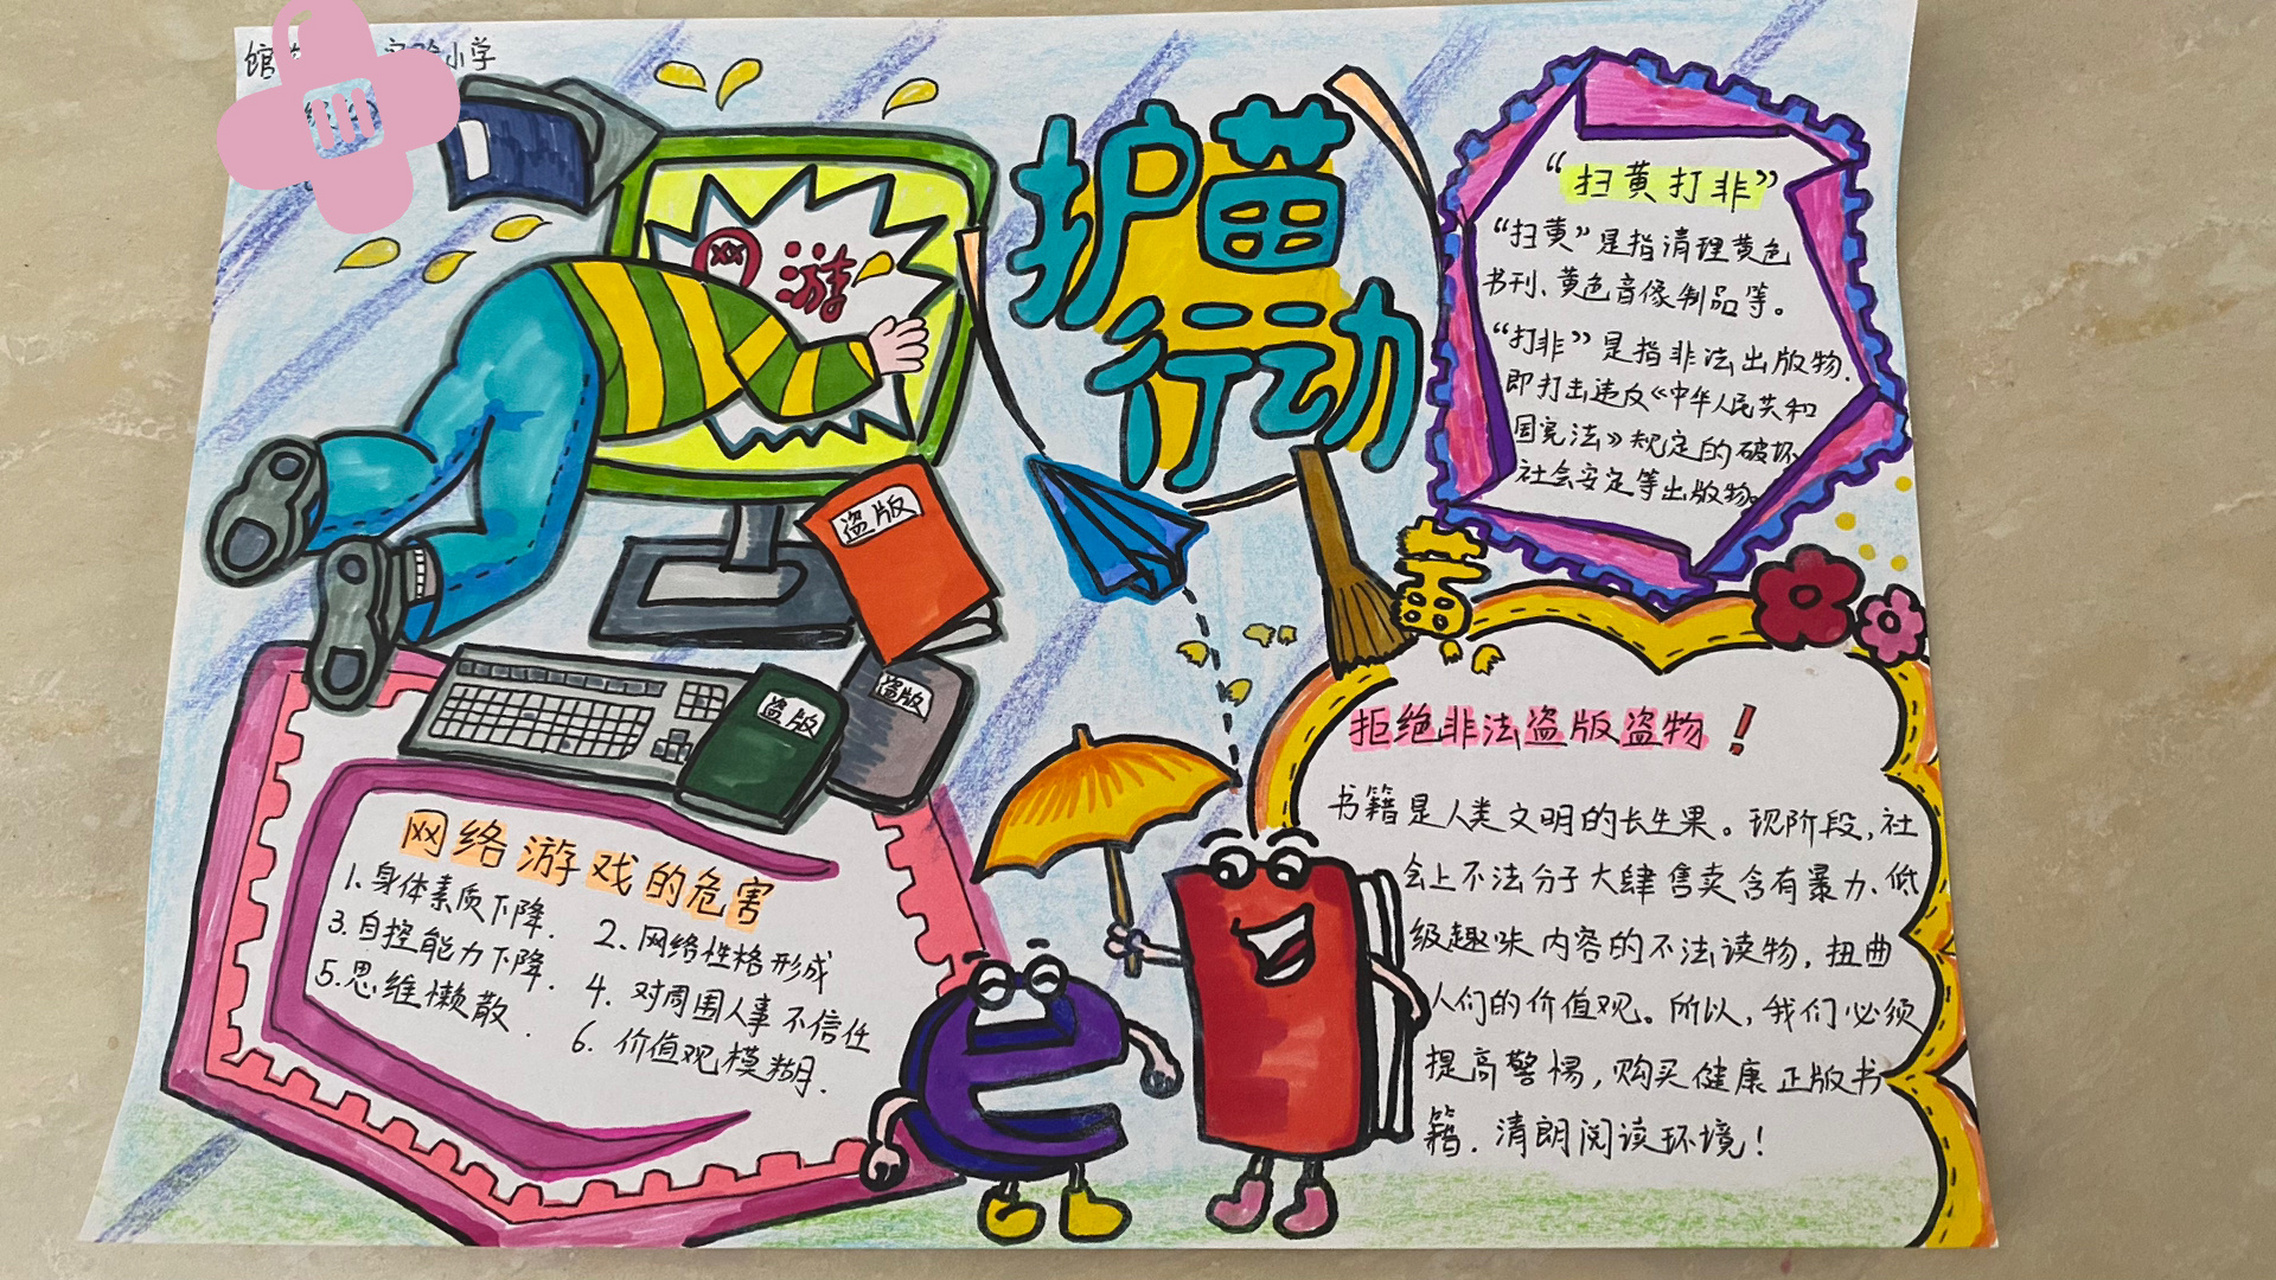 馆
小学
网游
护苗
行动
“扫黄打非”
“扫黄”是指清理黄色
书刊、黄色音像制品等。
“打非”是指非法出版物.
即打击违反《中华人民共和
国宪法》规定的破坏
社会安定等出版物。
盗版
盗版
盗版
黄
网络游戏的危害
1.身体素质下降.
2.网络性格形成
3.自控能力下降.
4.对周围人事不信任
5.思维懒散.
6.价值观模糊.
拒绝非法盗版盗物!
书籍是人类文明的长生果。现阶段,社
会上不法分子大肆售卖含有暴力、低
级趣味内容的不法读物,扭曲
人们的价值观。所以,我们必须
提高警惕,购买健康正版书
籍.清朗阅读环境!